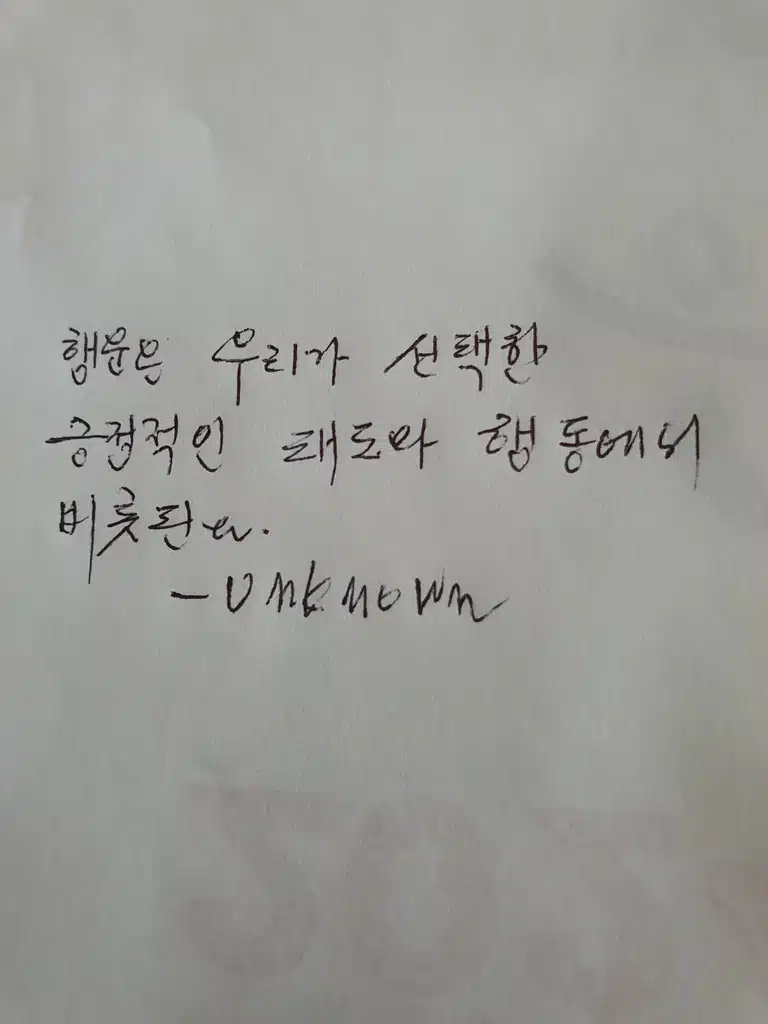 행운은 우리가 선택한
긍정적인 태도와 행동에서
비롯된다.
- Unknown